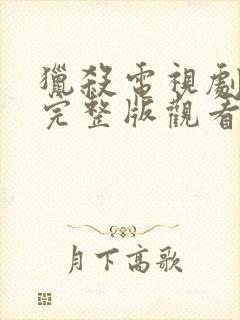 獵殺電視劇
完整版觀看
月下高歌